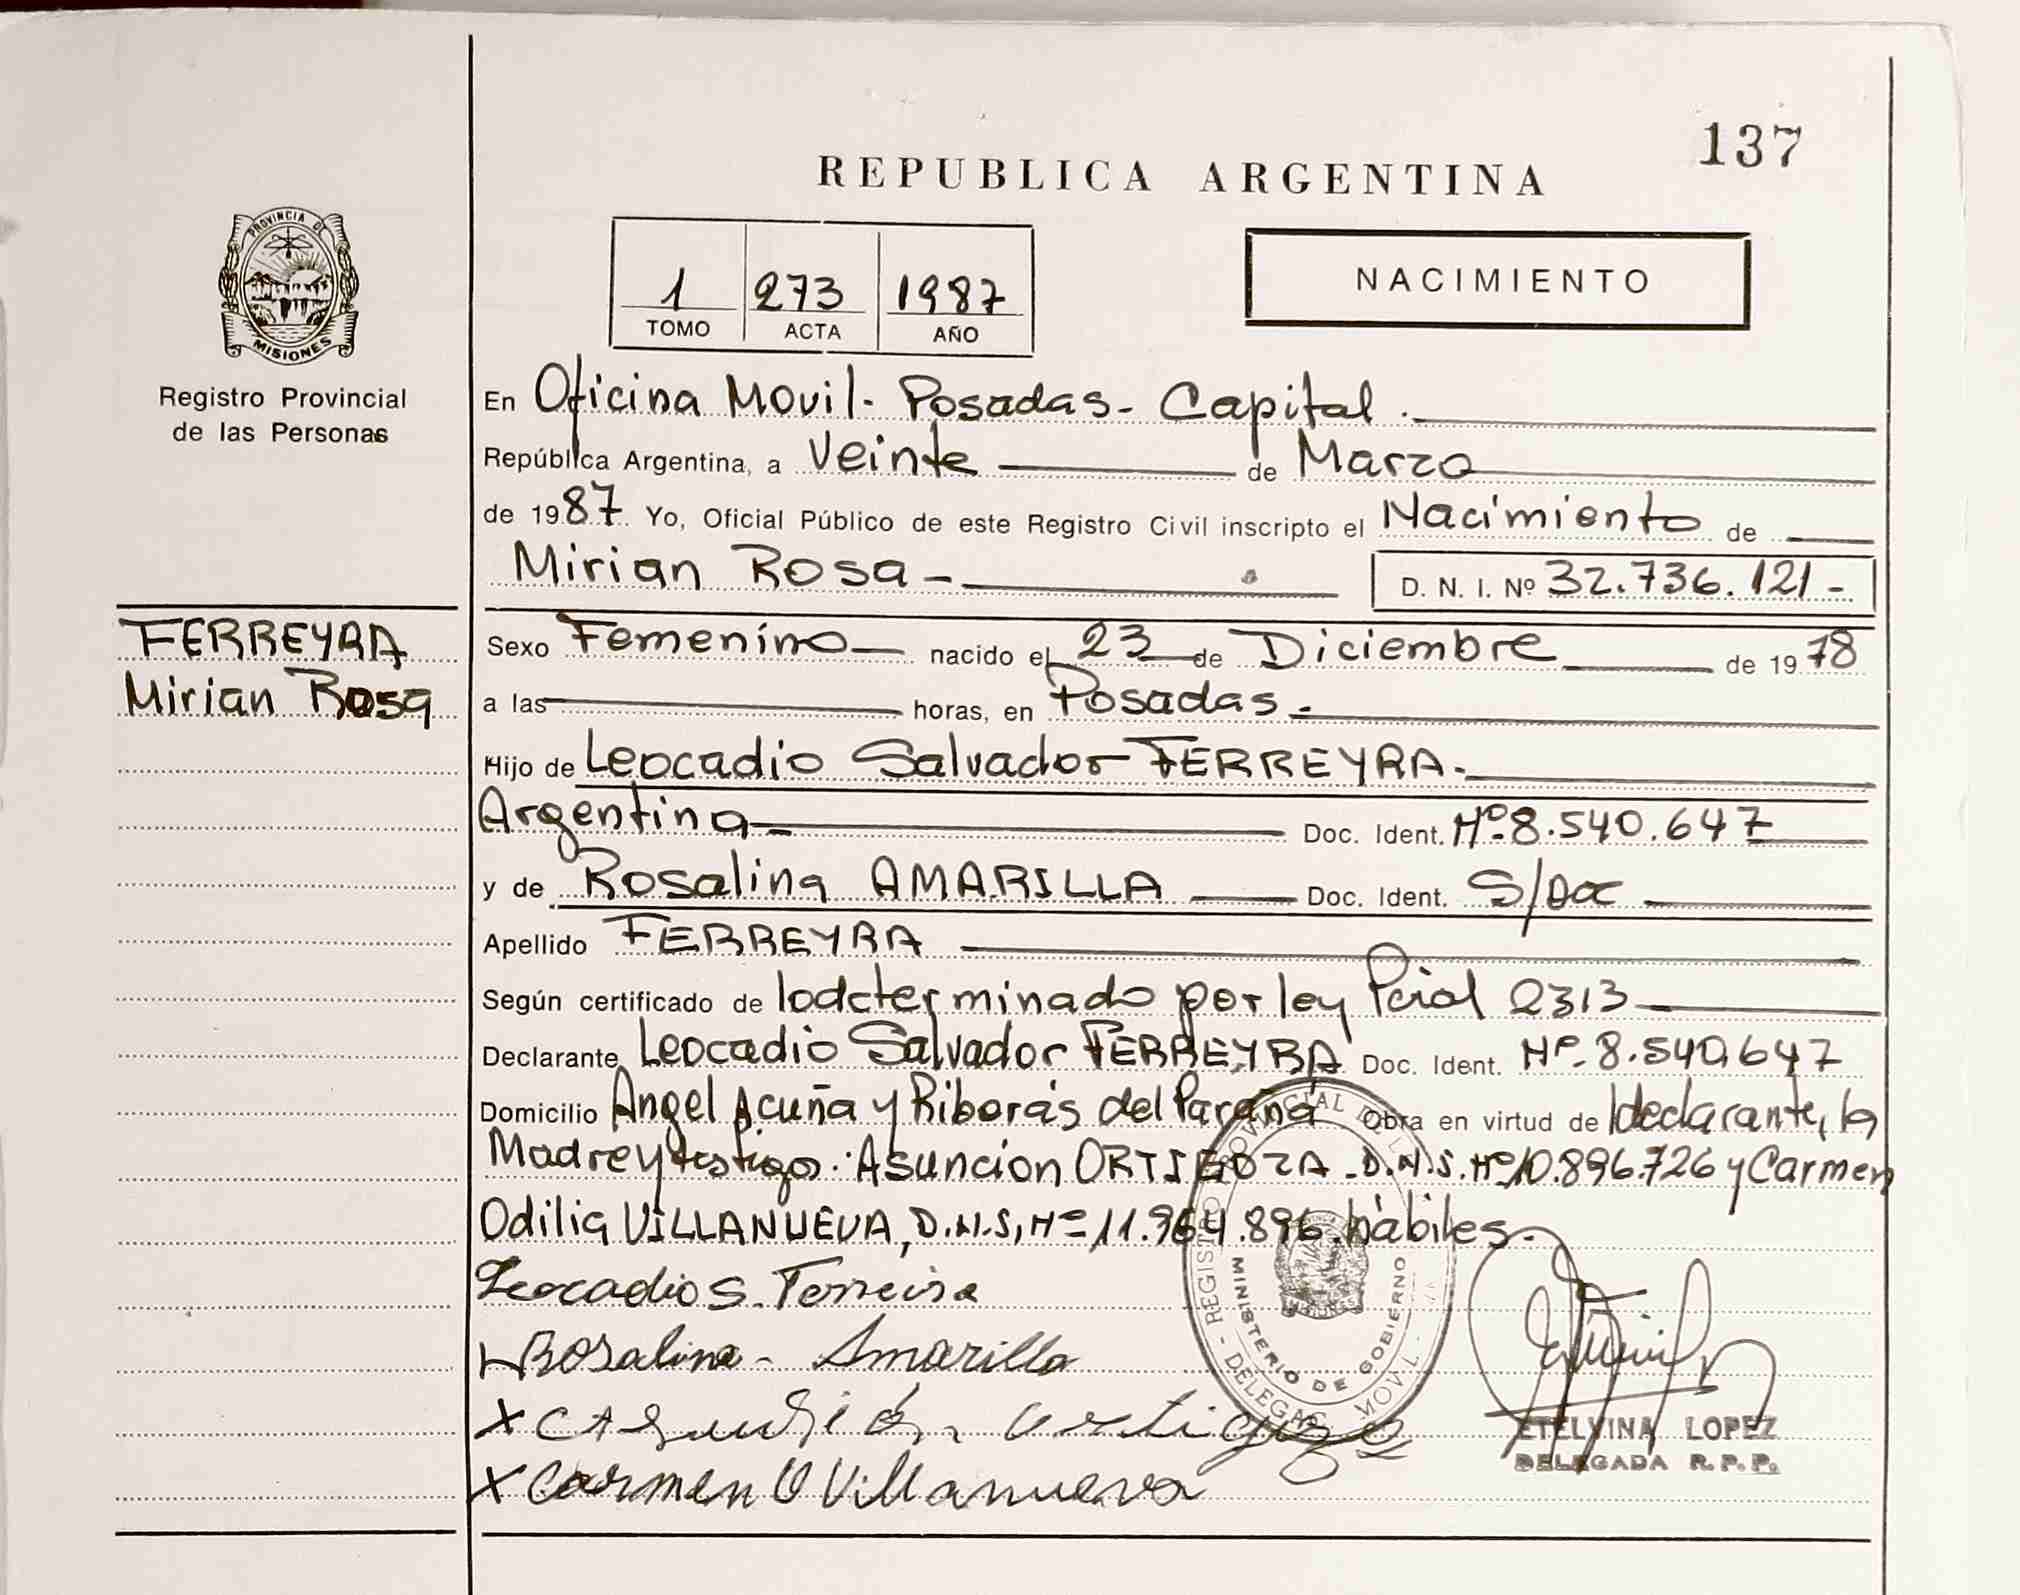 137
REPUBLICA ARGENTINA
PROVINCIA DE
MISIONES
Registro Provincial
de las Personas
1 273 1987
TOMO ACTA AÑO
NACIMIENTO
En Oficina Movil - Posadas - Capital.
República Argentina, a Veinte de Marzo
de 1987 Yo, Oficial Público de este Registro Civil inscripto el Nacimiento de
Mirian Rosa - D. N. I. Nº 32.736.121 -
FERREYRA
Mirian Rosa
Sexo Femenino nacido el 23 de Diciembre de 1978
a las horas, en Posadas.
Hijo de Leocadio Salvador FERREYRA.
Argentina Doc. Ident. Nº 8.540.647
y de Rosalina AMARILLA Doc. Ident. S/Doc
Apellido FERREYRA
Según certificado de lo determinado por ley Pcial 2313
Declarante Leocadio Salvador FERREYRA Doc. Ident. Nº 8.540.647
Domicilio Angel Acuña y Riboras del Paraná Obra en virtud de ldeclarante, la
Madre y testigo: Asuncion ORTIGOZA - D.N.I. Nº 10.896.726 y Carmen
Odilia VILLANUEVA, D.N.I, Nº 11.964.896. hábiles.
Leocadio S. Ferreira
Rosalina - Amarilla
X Asunción Ortigoza
X Carmen O Villanueva
REGISTRO PROVINCIAL DE L
MINISTERIO DE GOBIERNO
DELEGAC. MOVIL
ETELVINA LOPEZ
DELEGADA R. P. P.